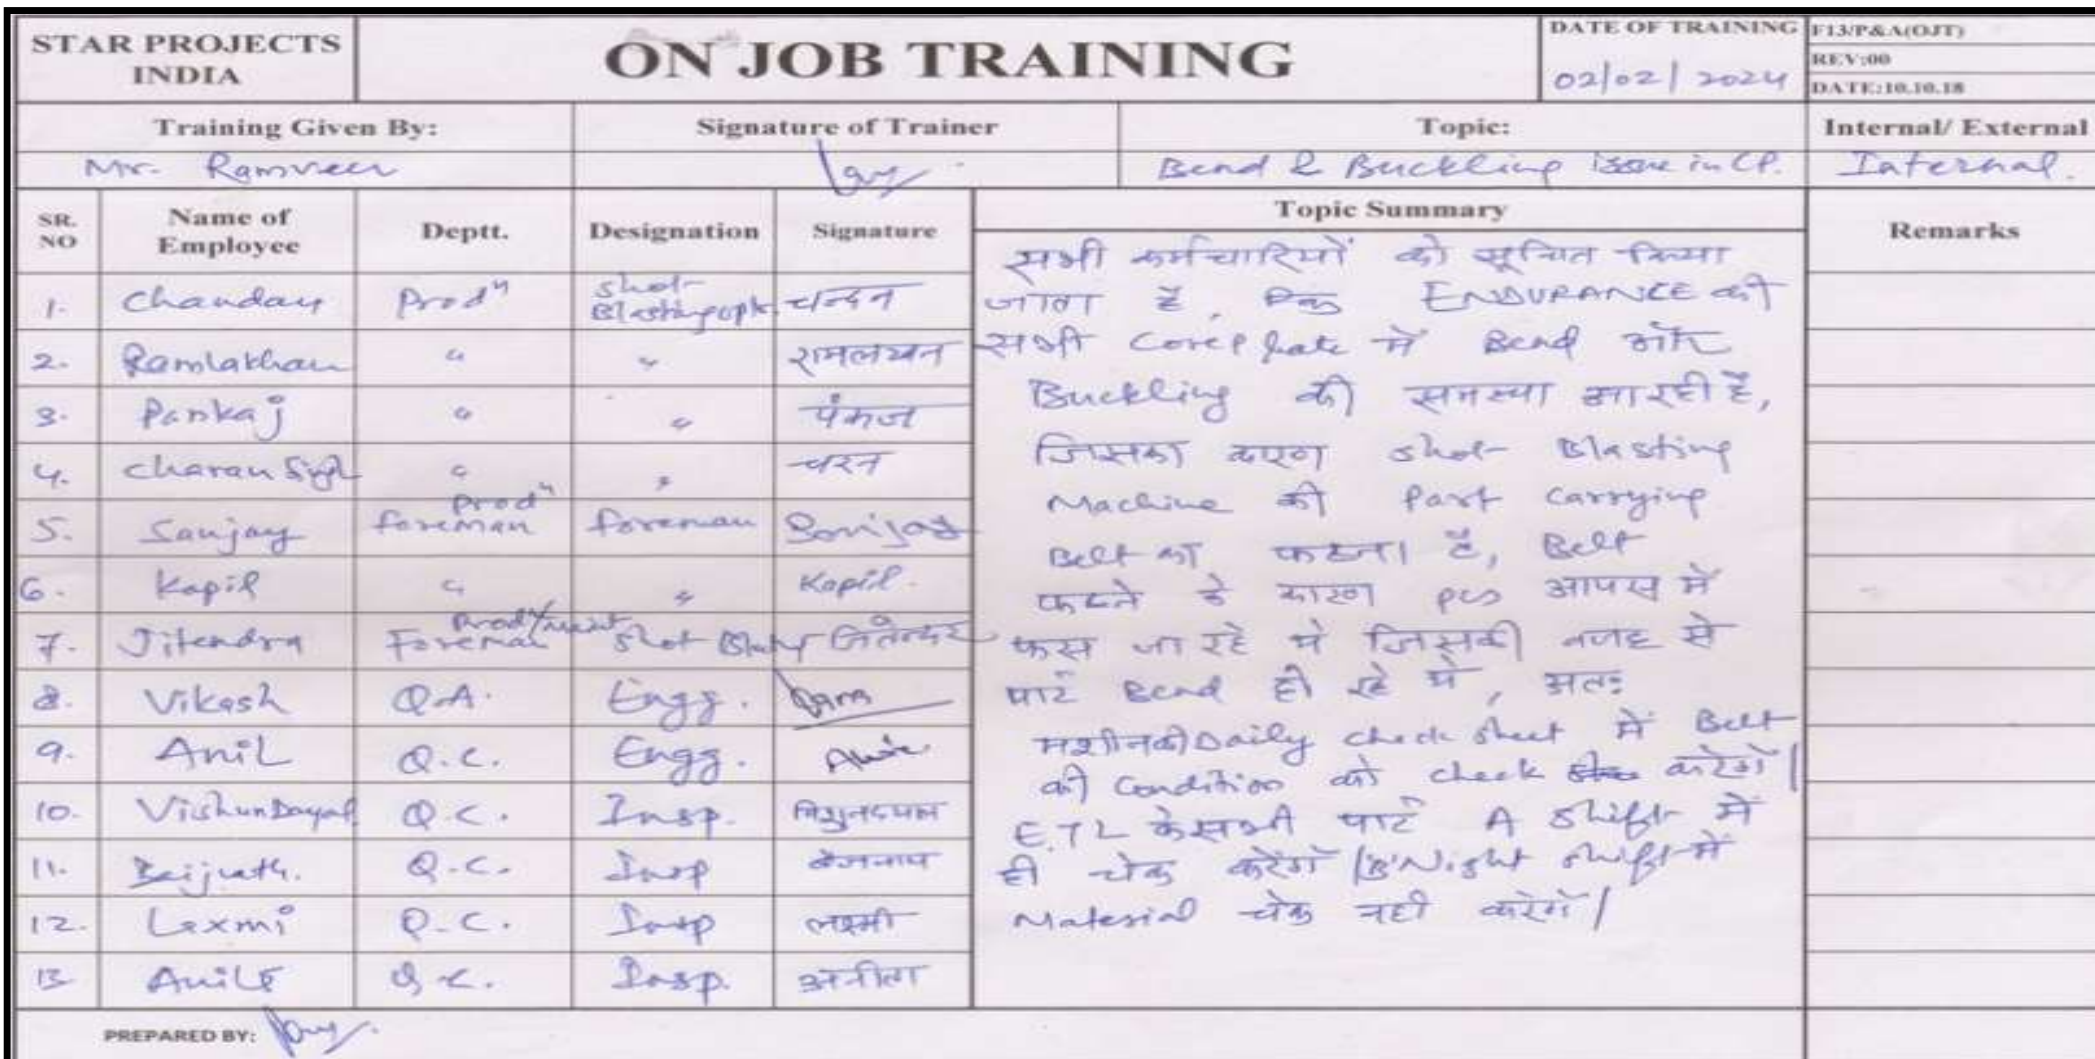 STAR PROJECTS
INDIA
ON JOB TRAINING
DATE OF TRAINING
02/02/2024
F13/P&A(OJT)
REV:00
DATE:10.10.18
Training Given By:
Signature of Trainer
Topic:
Internal/ External
Mr. Ramveer
Bend & Buckling issue in CP.
Internal.
SR. NO
Name of Employee
Deptt.
Designation
Signature
Topic Summary
Remarks
1. Chandan Prodn shot-Blasting optr. चन्दन
2. Ramlakhan " " रामलखन
3. Pankaj " " पंकज
4. Charan Singh " " चरन
5. Sanjay Prodn foreman foreman Sanjay
6. Kapil " " Kapil.
7. Jitendra Foreman Shot जितेन्दर
8. Vikash Q.A. Engg.
9. Anil Q.C. Engg.
10. Vishundayal Q.C. Insp. विशुनदयाल
11. Baijnath. Q.C. Insp बैजनाथ
12. Laxmi Q.C. Insp लक्ष्मी
13 Q.C. Insp. अनीता
सभी कर्मचारियों को सूचित किया
जाता है, कि ENDURANCE की
सभी Coreplate में Bend और
Buckling की समस्या आ रही है,
जिसका कारण shot- Blasting
Machine की Part Carrying
Belt का फटना है, Belt
फटने के कारण pcs आपस में
फस जा रहे थे जिसकी वजह से
पार्ट Bend हो रहे थे, अतः
मशीन की Daily check sheet में Belt
की Condition को check करेगें|
E.T.L के सभी पार्ट A shift में
ही चेक करेंगें |'B' Night shift में
Material चेक नही करेगें|
PREPARED BY: